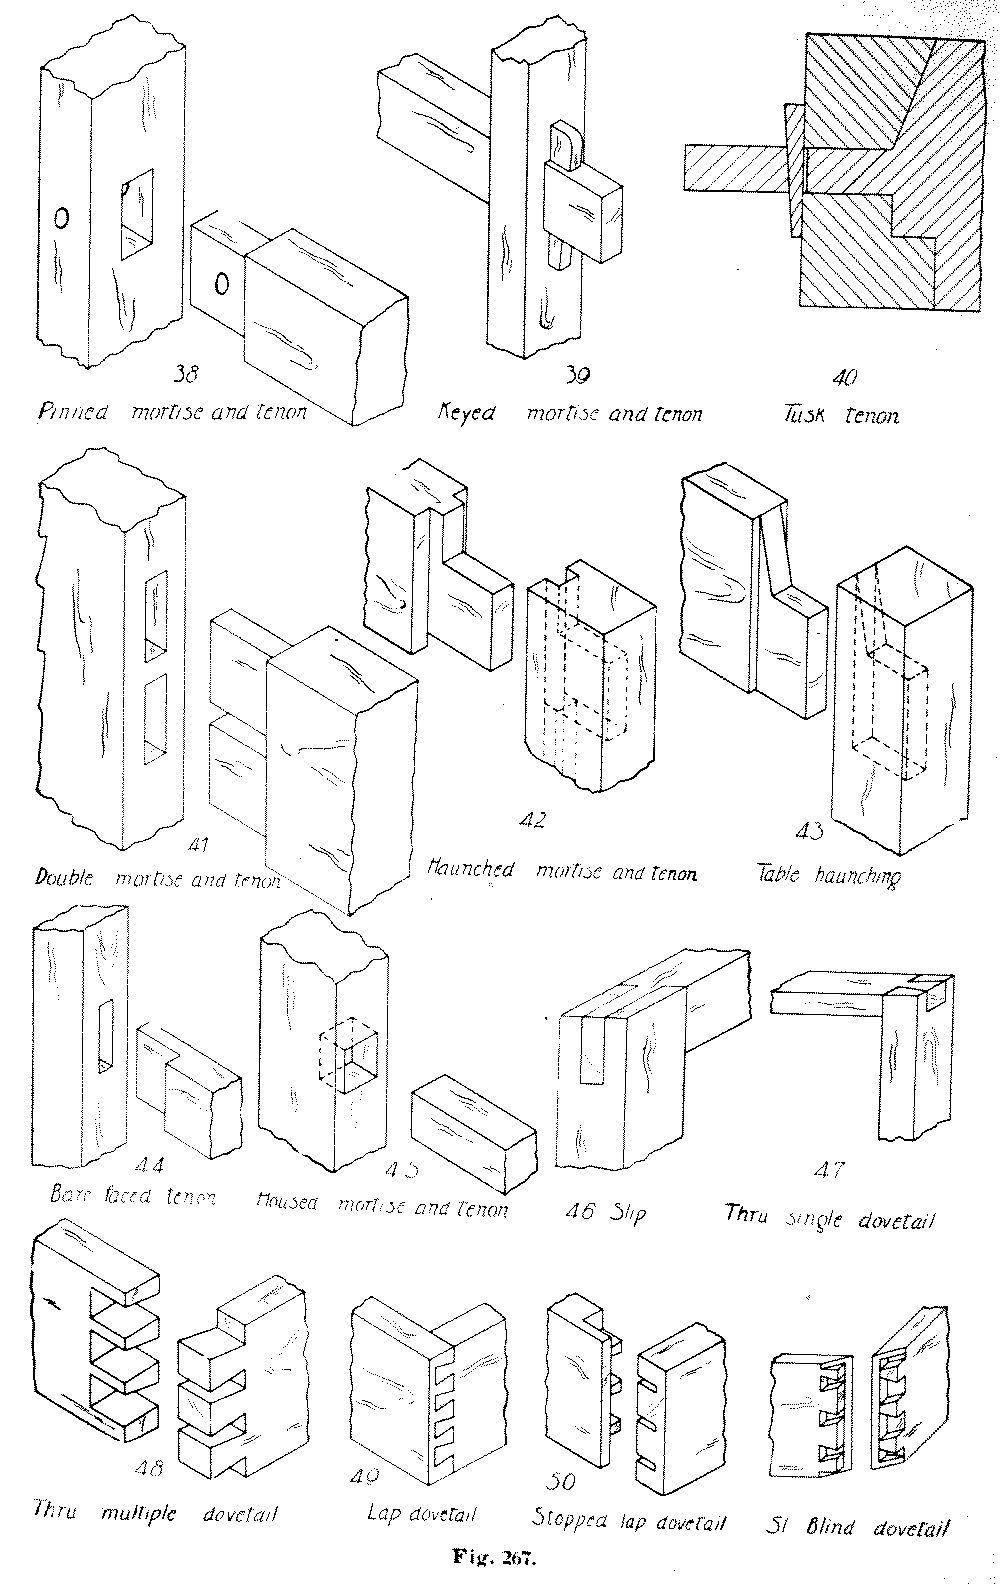 38
Pinned mortise and tenon
39
Keyed mortise and tenon
40
Tusk tenon
41
Double mortise and tenon
42
Haunched mortise and tenon
43
Table haunching
44
Bare faced tenon
45
Housed mortise and tenon
46 Slip
47
Thru single dovetail
48
Thru multiple dovetail
49
Lap dovetail
50
Stopped lap dovetail
51 Blind dovetail
Fig. 267.